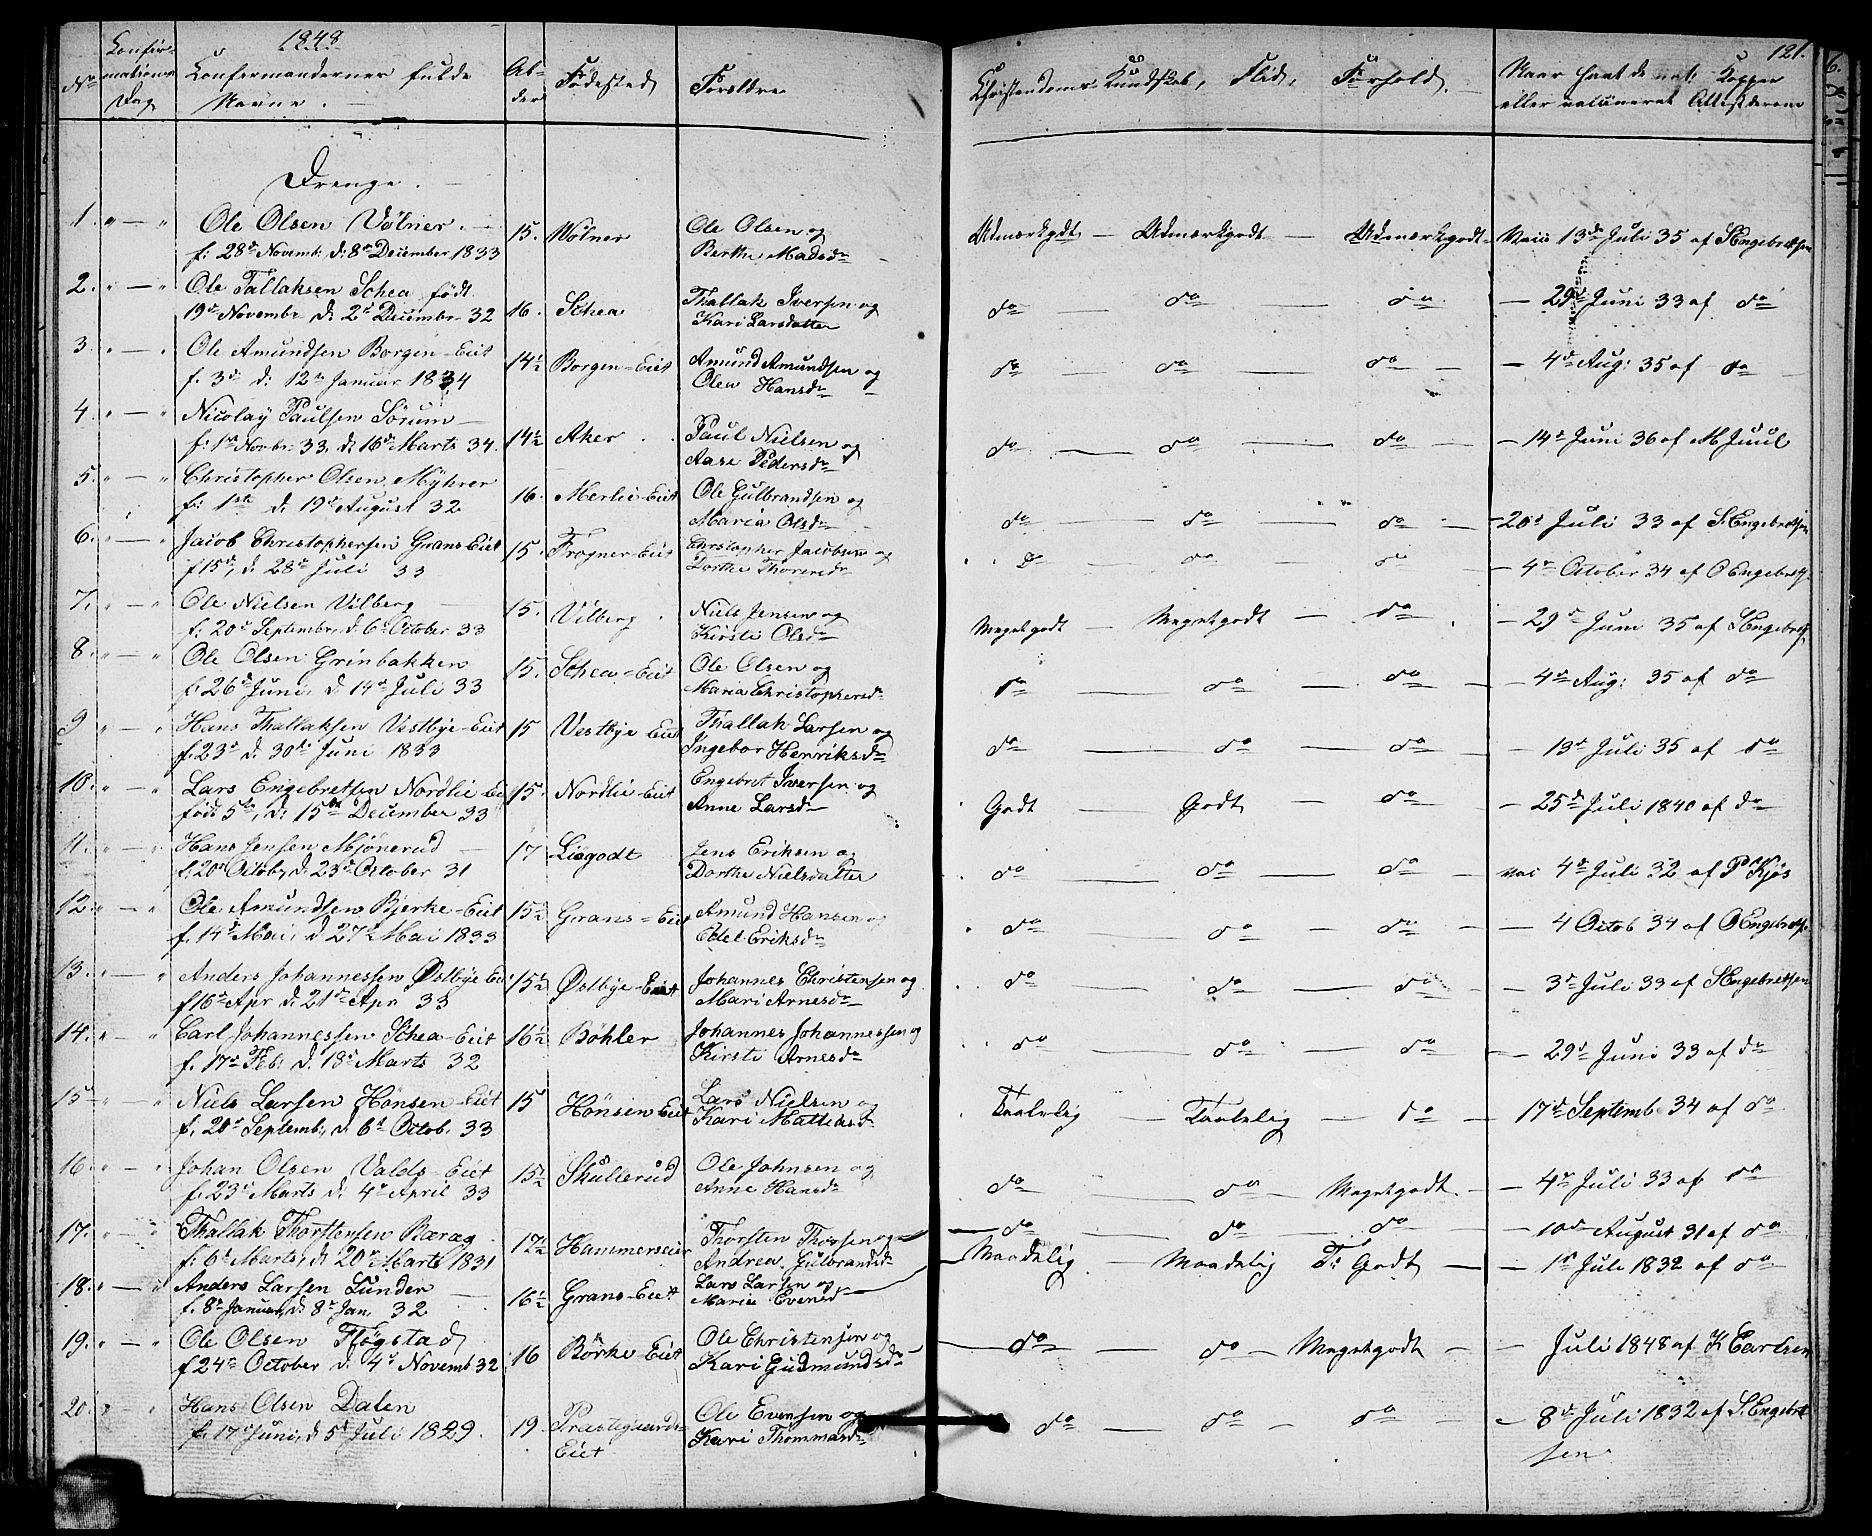 1848
121.
No
Confir-
mations
Dag
Confirmandernes fulde
Navne.
Al-
der
Fødested
Forældre
Christendoms-Kundskab, Flid, Forhold.
Naar havt de nat: Kopper
eller vaccineret Attestderom
Drenge.
1. " — " Ole Olsen Vølner. 15. Wølner Ole Olsen og Udmærkgodt — Udmærkgodt — Udmærkgodt Vacc 13de Juli 35 af S Engebretsen
f: 28de Novemb. d: 8de December 1833 Berthe Madsdr
2. " — " Ole Tallaksen Schea født 16. Schea Thallak Iversen og do — do — do — 29de Juni 33 af do
19de Novembr. d: 2de Decembr. 32 Kari Larsdatter
3. " — " Ole Amundsen Borgen-Eiet 14½ Borgen-Eiet Amund Amundsen og do — do — do — 4de Aug: 35 af do
f. 3de d: 12te Januar 1834 Olea Hansdr
4. " — " Nicolay Paulsen Sørum 14½ Aker Paul Nielsen og do — do — do — 14de Juni 36 af M Juul
f: 1ste Novbr. 33, d: 16de Marts 34. Aase Pedersdr
5. " — " Christopher Olsen Myhrer 16. Merlie-Eiet Ole Gulbrandsen og do — do — do — 20de Juli 33 af S. Engebretsen
f: 1ste d: 19de August 32. Maria Olsdr
6. " — " Jacob Christophersen Grans-Eiet 15. Frogner-Eiet Christopher Jacobsen og do do do — 4de October 34 af O Engebrets.
f 15de, d: 28de Juli 33 Dorthe Thoresdr
7. " — " Ole Nielsen Vilberg 15. Vilberg Niels Jensen og Megetgodt — Megetgodt — do — 29de Juni 35 af S Engebrets
f: 20de Septembr. d. 6te October 33 Kirsti Olsdr
8. " — " Ole Olsen Grinbakken 15. Schea-Eiet Ole Olsen og do — do — do — 4de Aug: 35 af do
f. 26de Juni, d. 14de Juli 33 Maria Christophersdr
9 " — " Hans Thallaksen Vestbye-Eiet 15 Vestbye Eiet Thallak Larsen og do — do — do — 13de Juli 35 af do
f. 23de d. 30de Juni 1833 Ingebor Henriksdr
10. " — " Lars Engebretsen Nordlie-Ei 15. Nordlie-Eiet Engebret Iversen og Godt — Godt — do — 25de Juli 1840 af do
født 5te, d: 15de December 33 Anne Larsdr
11. " — " Hans Jensen Mjønerud 17 Liegodt Jens Eriksen og do — do — do — vac 4de Juli 32 af P Kjøs
f. 20de Octob, d. 23de October 31 Dorthe Nielsdatter
12. " — " Ole Amundsen Bjerke-Eiet 15½ Grans-Eiet Amund Hansen og do — do — do — 4 Octob 34 af O Engebrets.
f. 14de Mai, d 27de Mai 1833 Edel Eriksdr
13. " — " Anders Johannessen Østbye-Ei 15½ Østbye-Eiet Johannes Christensen og do — do — do — 3de Juli 33 af S Engebretsen
f 16de Apr d. 21de Apr 33 Mari Arnesdr
14. " — " Carl Johannessen Schea-Eiet 16½ Bøhler Johannes Johannessen og do — do — do — 29de Juni 33 af do
f. 17de Feb. d. 18de Marts 32 Kirsti Arnesdr
15 " — " Niels Larsen Hønsen-Eiet 15 Hønsen Eiet Lars Nielsen og Taalelig — Taalelig — do — 17de Septemb 34 af do
f. 20de Septemb, d. 6te Octob. 33 Kari Mathiasdr
16. " — " Johan Olsen Valds-Eiet 15½ Skullerud Ole Johnsen og do — do — Megetgodt — 4de Juli 33 af do
f. 23de Marts d. 4de April 33 Anne Hansdr
17. " — " Thallak Thorstensen Bærag 17½ Hammerseier Thorsten Thorsen og — do — do — do — 10de August 31 af do
f: 6te Marts, d. 20de Marts 1831 Andrea Gulbrandsdr
18. " — " Anders Larsen Lunden 16½ Grans-Eiet Lars Larsen og Maadelig — Maadelig T: Godt — 1ste Juli 1832 af do
f. 8de Januar, d. 8de Jan. 32 Marie Evensdr
19. " — " Ole Olsen Fløgstad 16 Børke Eiet Ole Christensen og — do — do — Megetgodt — Juli 1848 af K Carlsen
f 24de October d. 4de Novemb 32 Kari Gudmundsdr
20. " — " Hans Olsen Dalen 19 Præstegaards- Ole Evensen og do — do — do — 8de Juli 1832 af S. Engebret
f. 17de Juni, d 5te Juli 1829. Eiet Kari Thommasdr sen